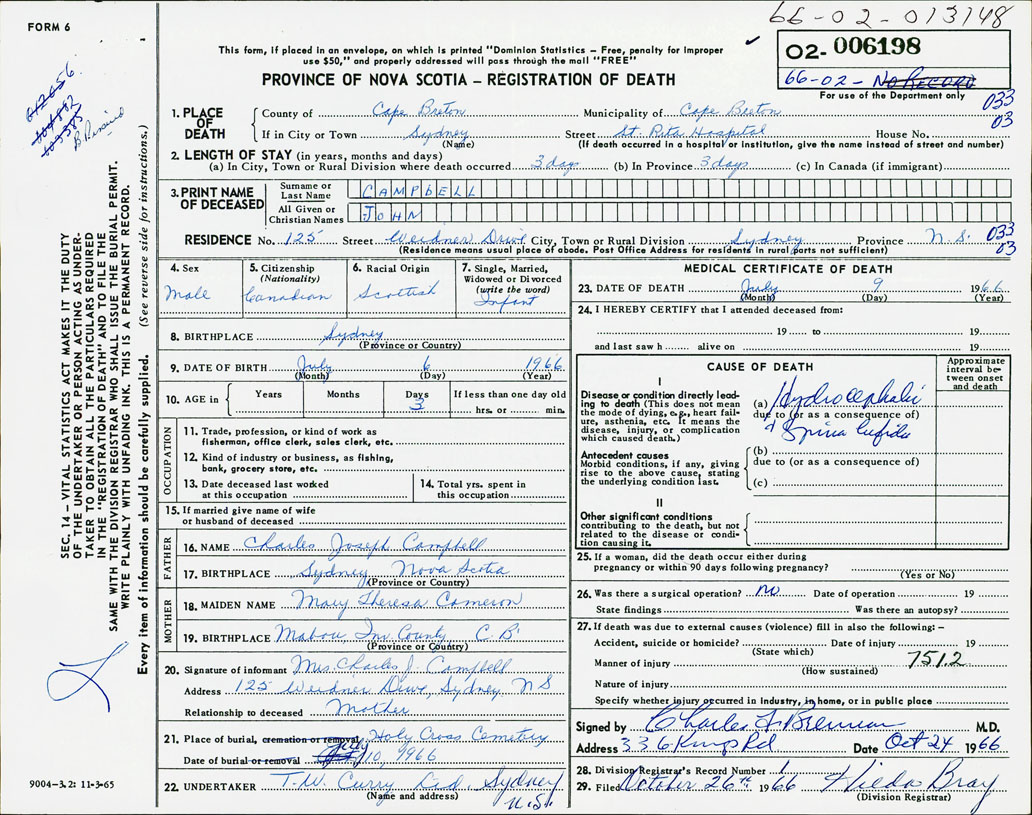 FORM 6
66-02-013148
This form, if placed in an envelope, on which is printed "Dominion Statistics – Free, penalty for improper
use $50," and properly addressed will pass through the mail "FREE"
PROVINCE OF NOVA SCOTIA – REGISTRATION OF DEATH
02- 006198
66-02- No Record
For use of the Department only
033
03
1. PLACE OF DEATH
County of Cape Breton Municipality of Cape Breton
If in City or Town Sydney Street St. Rita Hospital House No.
(Name) (If death occurred in a hospital or institution, give the name instead of street and number)
2. LENGTH OF STAY (in years, months and days)
(a) In City, Town or Rural Division where death occurred 3 days (b) In Province 3 days (c) In Canada (if immigrant)
3. PRINT NAME OF DECEASED
Surname or Last Name CAMPBELL
All Given or Christian Names JOHN
RESIDENCE No. 125 Street Weidner Drive City, Town or Rural Division Sydney Province N.S. 033
03
(Residence means usual place of abode. Post Office Address for residents in rural parts not sufficient)
4. Sex
Male
5. Citizenship (Nationality)
Canadian
6. Racial Origin
Scottish
7. Single, Married, Widowed or Divorced (write the word)
Infant
8. BIRTHPLACE Sydney
(Province or Country)
9. DATE OF BIRTH July 6 1966
(Month) (Day) (Year)
10. AGE in Years Months Days 3 If less than one day old hrs. or min.
OCCUPATION
11. Trade, profession, or kind of work as
fisherman, office clerk, sales clerk, etc.
12. Kind of industry or business, as fishing,
bank, grocery store, etc.
13. Date deceased last worked
at this occupation
14. Total yrs. spent in
this occupation
15. If married give name of wife
or husband of deceased
FATHER
16. NAME Charles Joseph Campbell
17. BIRTHPLACE Sydney Nova Scotia
(Province or Country)
MOTHER
18. MAIDEN NAME Mary Theresa Cameron
19. BIRTHPLACE Mabou, Inv County, C.B.
(Province or Country)
20. Signature of informant Mrs. Charles J. Campbell
Address 125 Weidner Drive, Sydney, NS
Relationship to deceased Mother
21. Place of burial, cremation or removal Holy Cross Cemetery
Date of burial or removal July 10, 1966
22. UNDERTAKER T.W. Curry Ltd, Sydney
N.S.
(Name and address)
MEDICAL CERTIFICATE OF DEATH
23. DATE OF DEATH July 9 1966
(Month) (Day) (Year)
24. I HEREBY CERTIFY that I attended deceased from:
19 to 19
and last saw h alive on 19
CAUSE OF DEATH
Approximate interval between onset and death
I
Disease or condition directly leading to death (This does not mean
the mode of dying, e.g., heart failure, asthenia, etc. It means the
disease, injury, or complication
which caused death.)
(a) Hydrocephalic
due to (or as a consequence of)
& Spina bifida
Antecedent causes
Morbid conditions, if any, giving
rise to the above cause, stating
the underlying condition last.
(b)
due to (or as a consequence of)
(c)
II
Other significant conditions
contributing to the death, but not
related to the disease or condition causing it.
25. If a woman, did the death occur either during
pregnancy or within 90 days following pregnancy?
(Yes or No)
26. Was there a surgical operation? no Date of operation 19
State findings Was there an autopsy?
27. If death was due to external causes (violence) fill in also the following: –
Accident, suicide or homicide? Date of injury 19
(State which)
Manner of injury 751.2
(How sustained)
Nature of injury
Specify whether injury occurred in Industry, in home, or in public place
Signed by Charles F. Brennan M.D.
Address 336 Kings Rd Date Oct 24 1966
28. Division Registrar's Record Number 1
29. Filed October 26th 1966 Hilda Bray
(Division Registrar)
SEC. 14 – VITAL STATISTICS ACT MAKES IT THE DUTY
OF THE UNDERTAKER OR PERSON ACTING AS UNDER-
TAKER TO OBTAIN ALL THE PARTICULARS REQUIRED
IN THE "REGISTRATION OF DEATH" AND TO FILE THE
SAME WITH THE DIVISION REGISTRAR WHO SHALL ISSUE THE BURIAL PERMIT.
WRITE PLAINLY WITH UNFADING INK. THIS IS A PERMANENT RECORD.
Every item of information should be carefully supplied. (See reverse side for instructions.)
9004-3.2: 11-3-65